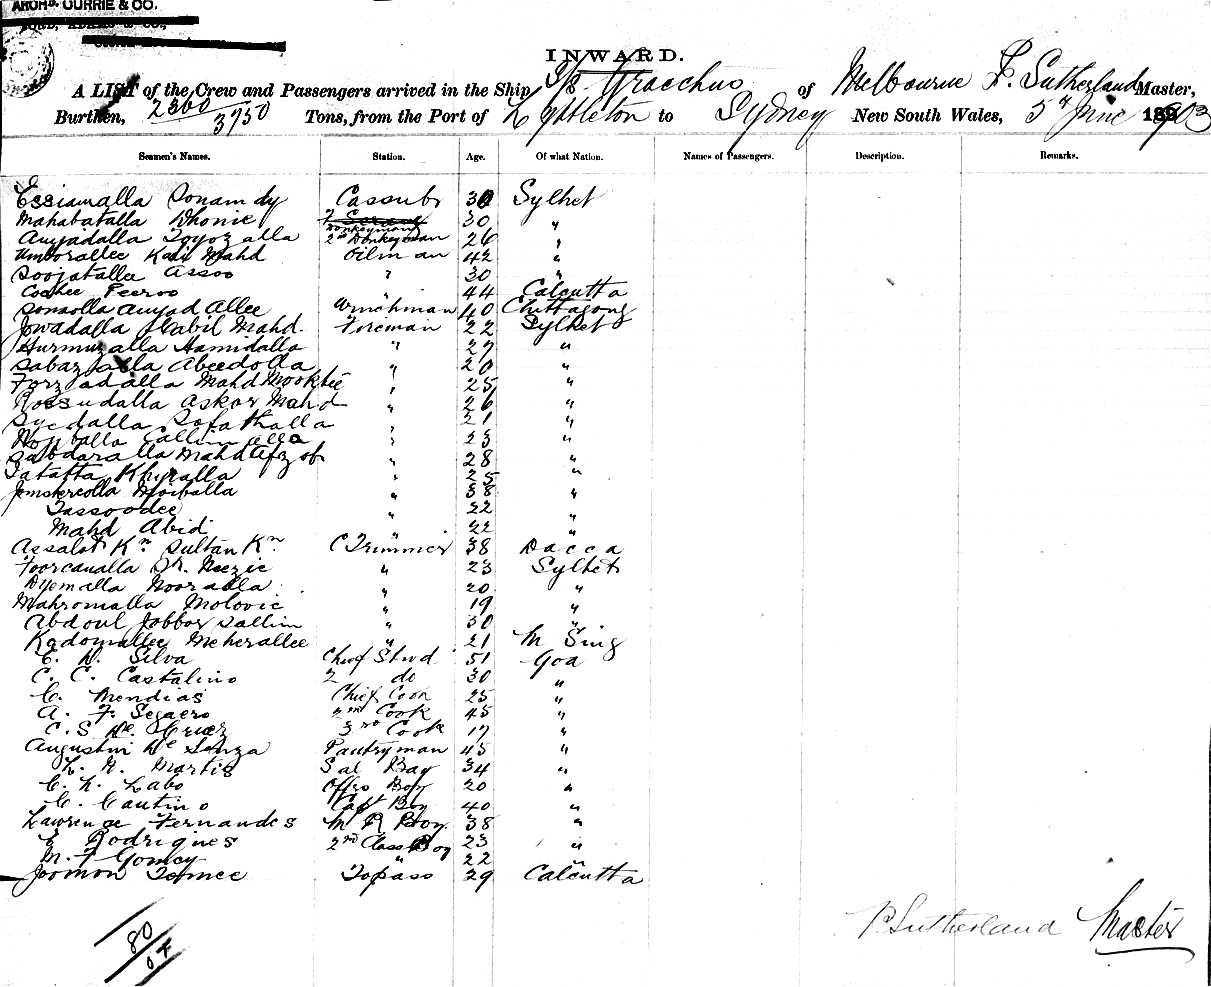 ARCHD. CURRIE & CO.
INWARD.
A LIST of the Crew and Passengers arrived in the Ship S/s Gracchus of Melbourne F. Sutherland Master,
Burthen, 2360/3750 Tons, from the Port of Lyttleton to Sydney New South Wales, 5th June 1903
Seamen's Names. Station. Age. Of what Nation. Names of Passengers. Description. Remarks.
Essiamalla Sonamdy Cassub 30 Sylhet
Mahabatalla Dhonie Donkeyman 30 "
Amjadalla Toyozalla 2nd Donkeyman 26 "
Umborallee Kari Mahd Oilman 42 "
Soojatalla Assoo " 30 "
Cochee Peeroo " 44 Calcutta
Sonaolla Amjad Allee Winchman 40 Chittagong
Jowadalla Habil Mahd. Fireman 22 Sylhet
Hurmuzalla Hamidalla " 27 "
Sabazjalla Abeedolla " 20 "
Forzjadalla Mahd Mooktie " 25 "
Rossudalla Askor Mahd " 26 "
Syedalla Sofathalla " 21 "
Mojballa Callimalla " 23 "
Sabdaralla Mahd Afzob " 28 "
Tatatta Khyralla " 25 "
Jamshereolla Moiballa " 38 "
Tassoodee " 22 "
Mahd Abid " 22 "
Assalot Kn. Sultan Kn. C Trimmer 38 Dacca
Toorcanalla Sk. Neezie " 23 Sylhet
Dyemalla Nooralla " 20 "
Mahromalla Molovie " 19 "
Abdoul Jobbor Sallim " 30 "
Kadomallee Meherallee " 21 M Sing
E. D. Silva Chief Stwd 51 Goa
C. C. Castalino 2 do 30 "
C. Mendias Chief Cook 25 "
A. F. Segaero 2nd Cook 45 "
C. S. De Cruez 3rd Cook 17 "
Augustin De Souza Pantryman 45 "
L. M. Martis Sal Boy 34 "
C. L. Labo Offrs Boy 20 "
C. Cautino Capt Boy 40 "
Lawrence Fernandes M R Boy. 38 "
E Rodriques 2nd Class Boy 23 "
M. F Gomey " 22 "
Joomon Tomee Topass 29 Calcutta
F. Sutherland Master
80
04